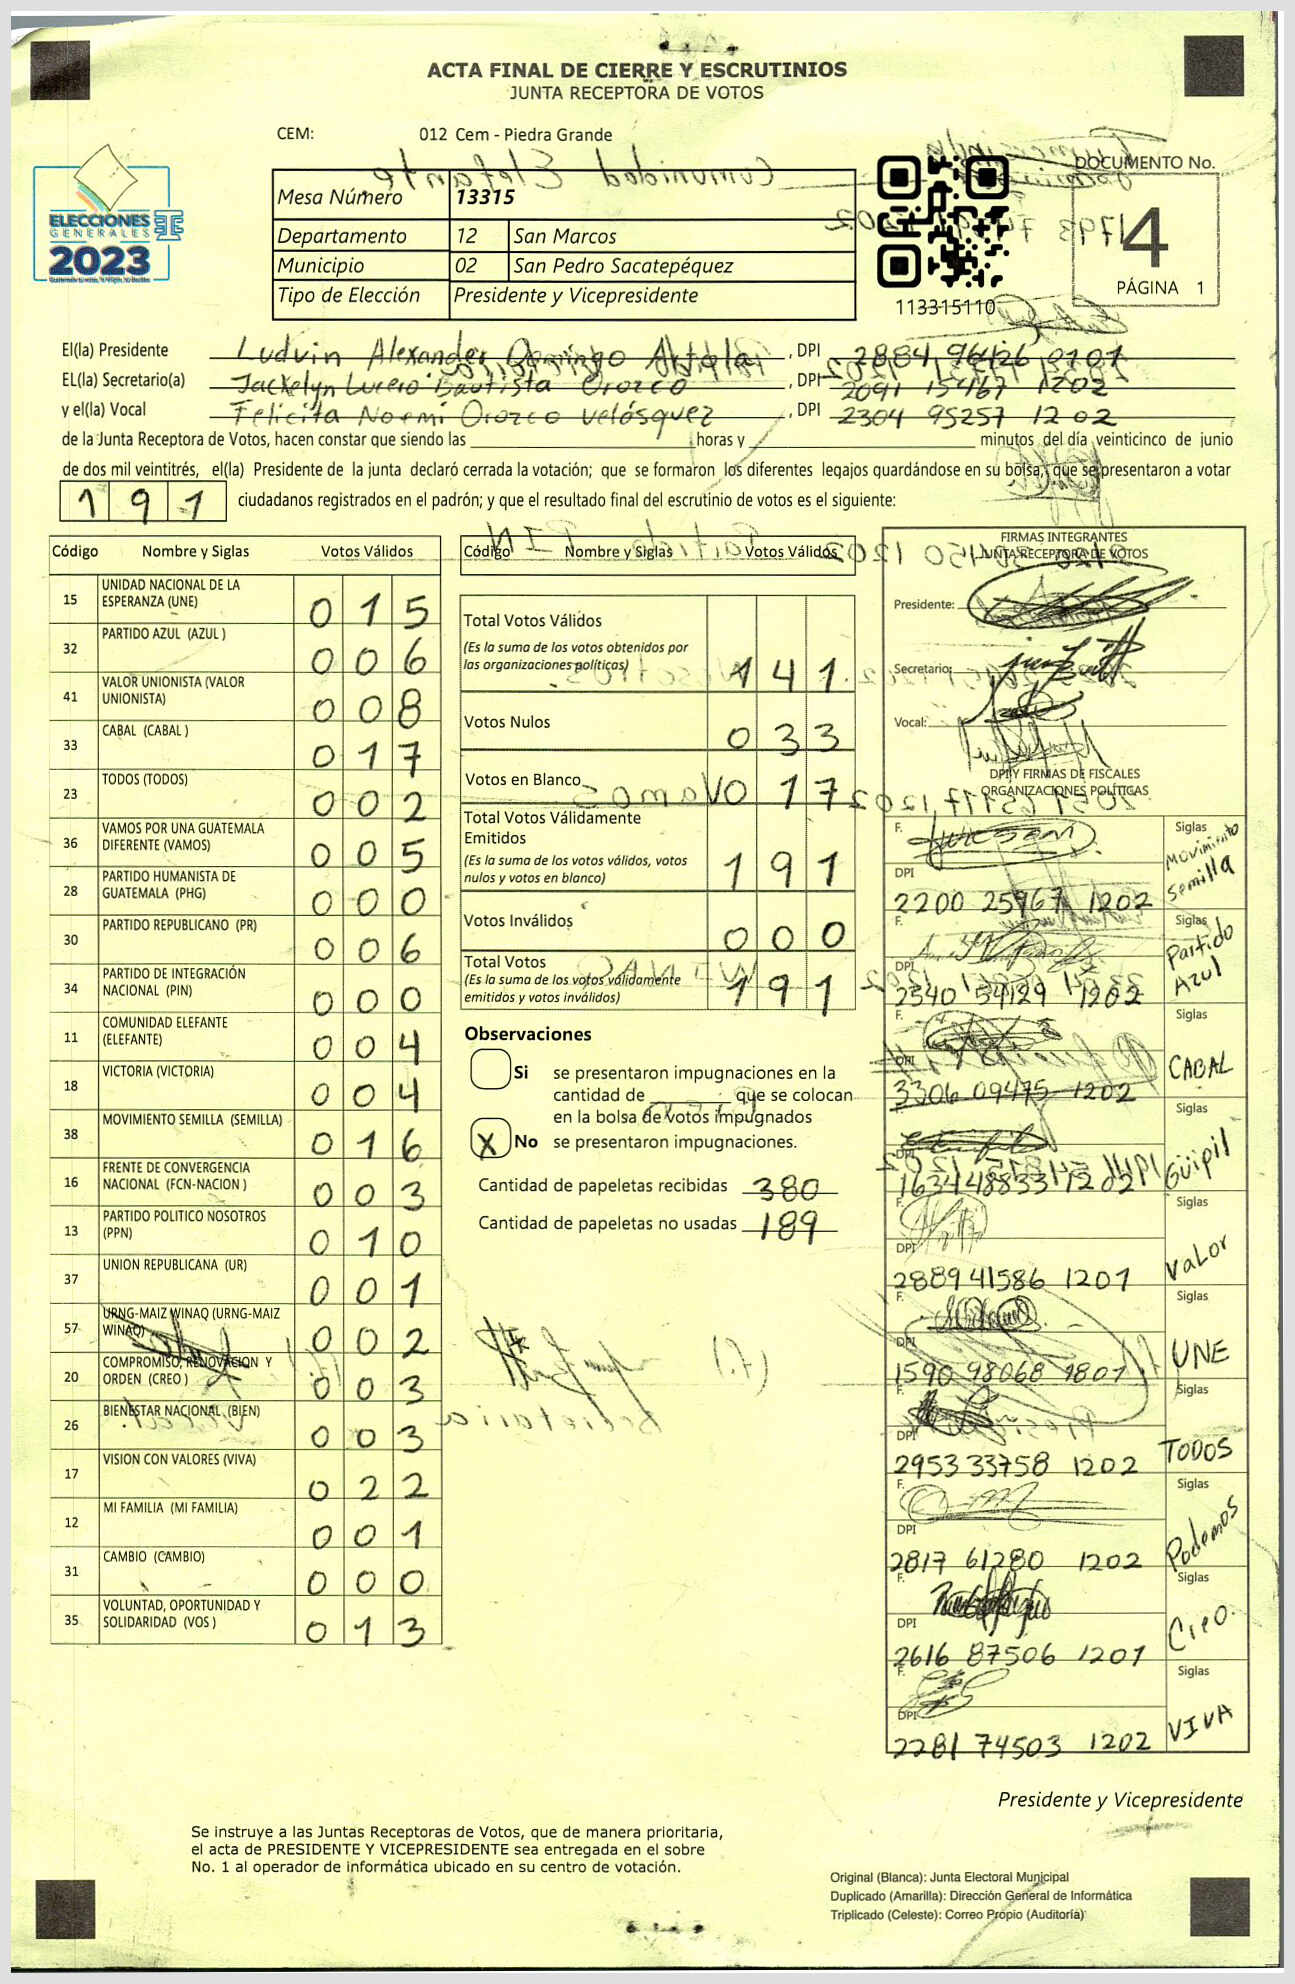 ACTA FINAL DE CIERRE Y ESCRUTINIOS
JUNTA RECEPTORA DE VOTOS
CEM: 012 Cem - Piedra Grande
ELECCIONES
GENERALES
2023
Mesa Número 13315
Departamento 12 San Marcos
Municipio 02 San Pedro Sacatepéquez
Tipo de Elección Presidente y Vicepresidente
113315110
DOCUMENTO No.
4
PÁGINA 1
El(la) Presidente Ludvin Alexander Domingo , DPI 2884 96126 0101
EL(la) Secretario(a) Jackelyn Lucero Bautista Orozco , DPI 2091 15467 1202
y el(la) Vocal Felicita Noemi Orozco Velásquez , DPI 2304 95257 1202
de la Junta Receptora de Votos, hacen constar que siendo las horas y minutos del día veinticinco de junio
de dos mil veintitrés, el(la) Presidente de la junta declaró cerrada la votación; que se formaron los diferentes legajos guardándose en su bolsa, que se presentaron a votar
191 ciudadanos registrados en el padrón; y que el resultado final del escrutinio de votos es el siguiente:
Código Nombre y Siglas Votos Válidos
15 UNIDAD NACIONAL DE LA ESPERANZA (UNE) 015
32 PARTIDO AZUL (AZUL ) 006
41 VALOR UNIONISTA (VALOR UNIONISTA) 008
33 CABAL (CABAL ) 017
23 TODOS (TODOS) 002
36 VAMOS POR UNA GUATEMALA DIFERENTE (VAMOS) 005
28 PARTIDO HUMANISTA DE GUATEMALA (PHG) 000
30 PARTIDO REPUBLICANO (PR) 006
34 PARTIDO DE INTEGRACIÓN NACIONAL (PIN) 000
11 COMUNIDAD ELEFANTE (ELEFANTE) 004
18 VICTORIA (VICTORIA) 004
38 MOVIMIENTO SEMILLA (SEMILLA) 016
16 FRENTE DE CONVERGENCIA NACIONAL (FCN-NACION ) 003
13 PARTIDO POLITICO NOSOTROS (PPN) 010
37 UNION REPUBLICANA (UR) 001
57 URNG-MAIZ WINAQ (URNG-MAIZ WINAQ) 002
20 COMPROMISO, RENOVACION Y ORDEN (CREO ) 003
26 BIENESTAR NACIONAL (BIEN) 003
17 VISION CON VALORES (VIVA) 022
12 MI FAMILIA (MI FAMILIA) 001
31 CAMBIO (CAMBIO) 000
35 VOLUNTAD, OPORTUNIDAD Y SOLIDARIDAD (VOS ) 013
Código Nombre y Siglas Votos Válidos
Total Votos Válidos
(Es la suma de los votos obtenidos por
las organizaciones políticas) 141
Votos Nulos 033
Votos en Blanco 017
Total Votos Válidamente
Emitidos
(Es la suma de los votos válidos, votos
nulos y votos en blanco) 191
Votos Inválidos 000
Total Votos
(Es la suma de los votos válidamente
emitidos y votos inválidos) 191
Observaciones
Si se presentaron impugnaciones en la
cantidad de que se colocan
en la bolsa de votos impugnados
X No se presentaron impugnaciones.
Cantidad de papeletas recibidas 380
Cantidad de papeletas no usadas 189
FIRMAS INTEGRANTES
JUNTA RECEPTORA DE VOTOS
Presidente:
Secretario:
Vocal:
DPI Y FIRMAS DE FISCALES
ORGANIZACIONES POLÍTICAS
F. Siglas
DPI 2200 25967 1202 Movimiento Semilla
F. Siglas
DPI 2540 54129 1202 Partido Azul
F. Siglas
DPI 3306 09475 1202 CABAL
Siglas
DPI 1634 48833 1202 Güipil
Siglas
DPI 2889 41586 1201 Valor
F. Siglas
DPI 1590 98068 1801 UNE
F. Siglas
DPI 2953 33758 1202 TODOS
F. Siglas
DPI 2817 61280 1202 Podemos
F. Siglas
DPI 2616 87506 1201 Creo.
F. Siglas
DPI 2281 74503 1202 VIVA
Presidente y Vicepresidente
Se instruye a las Juntas Receptoras de Votos, que de manera prioritaria,
el acta de PRESIDENTE Y VICEPRESIDENTE sea entregada en el sobre
No. 1 al operador de informática ubicado en su centro de votación.
Original (Blanca): Junta Electoral Municipal
Duplicado (Amarilla): Dirección General de Informática
Triplicado (Celeste): Correo Propio (Auditoría)